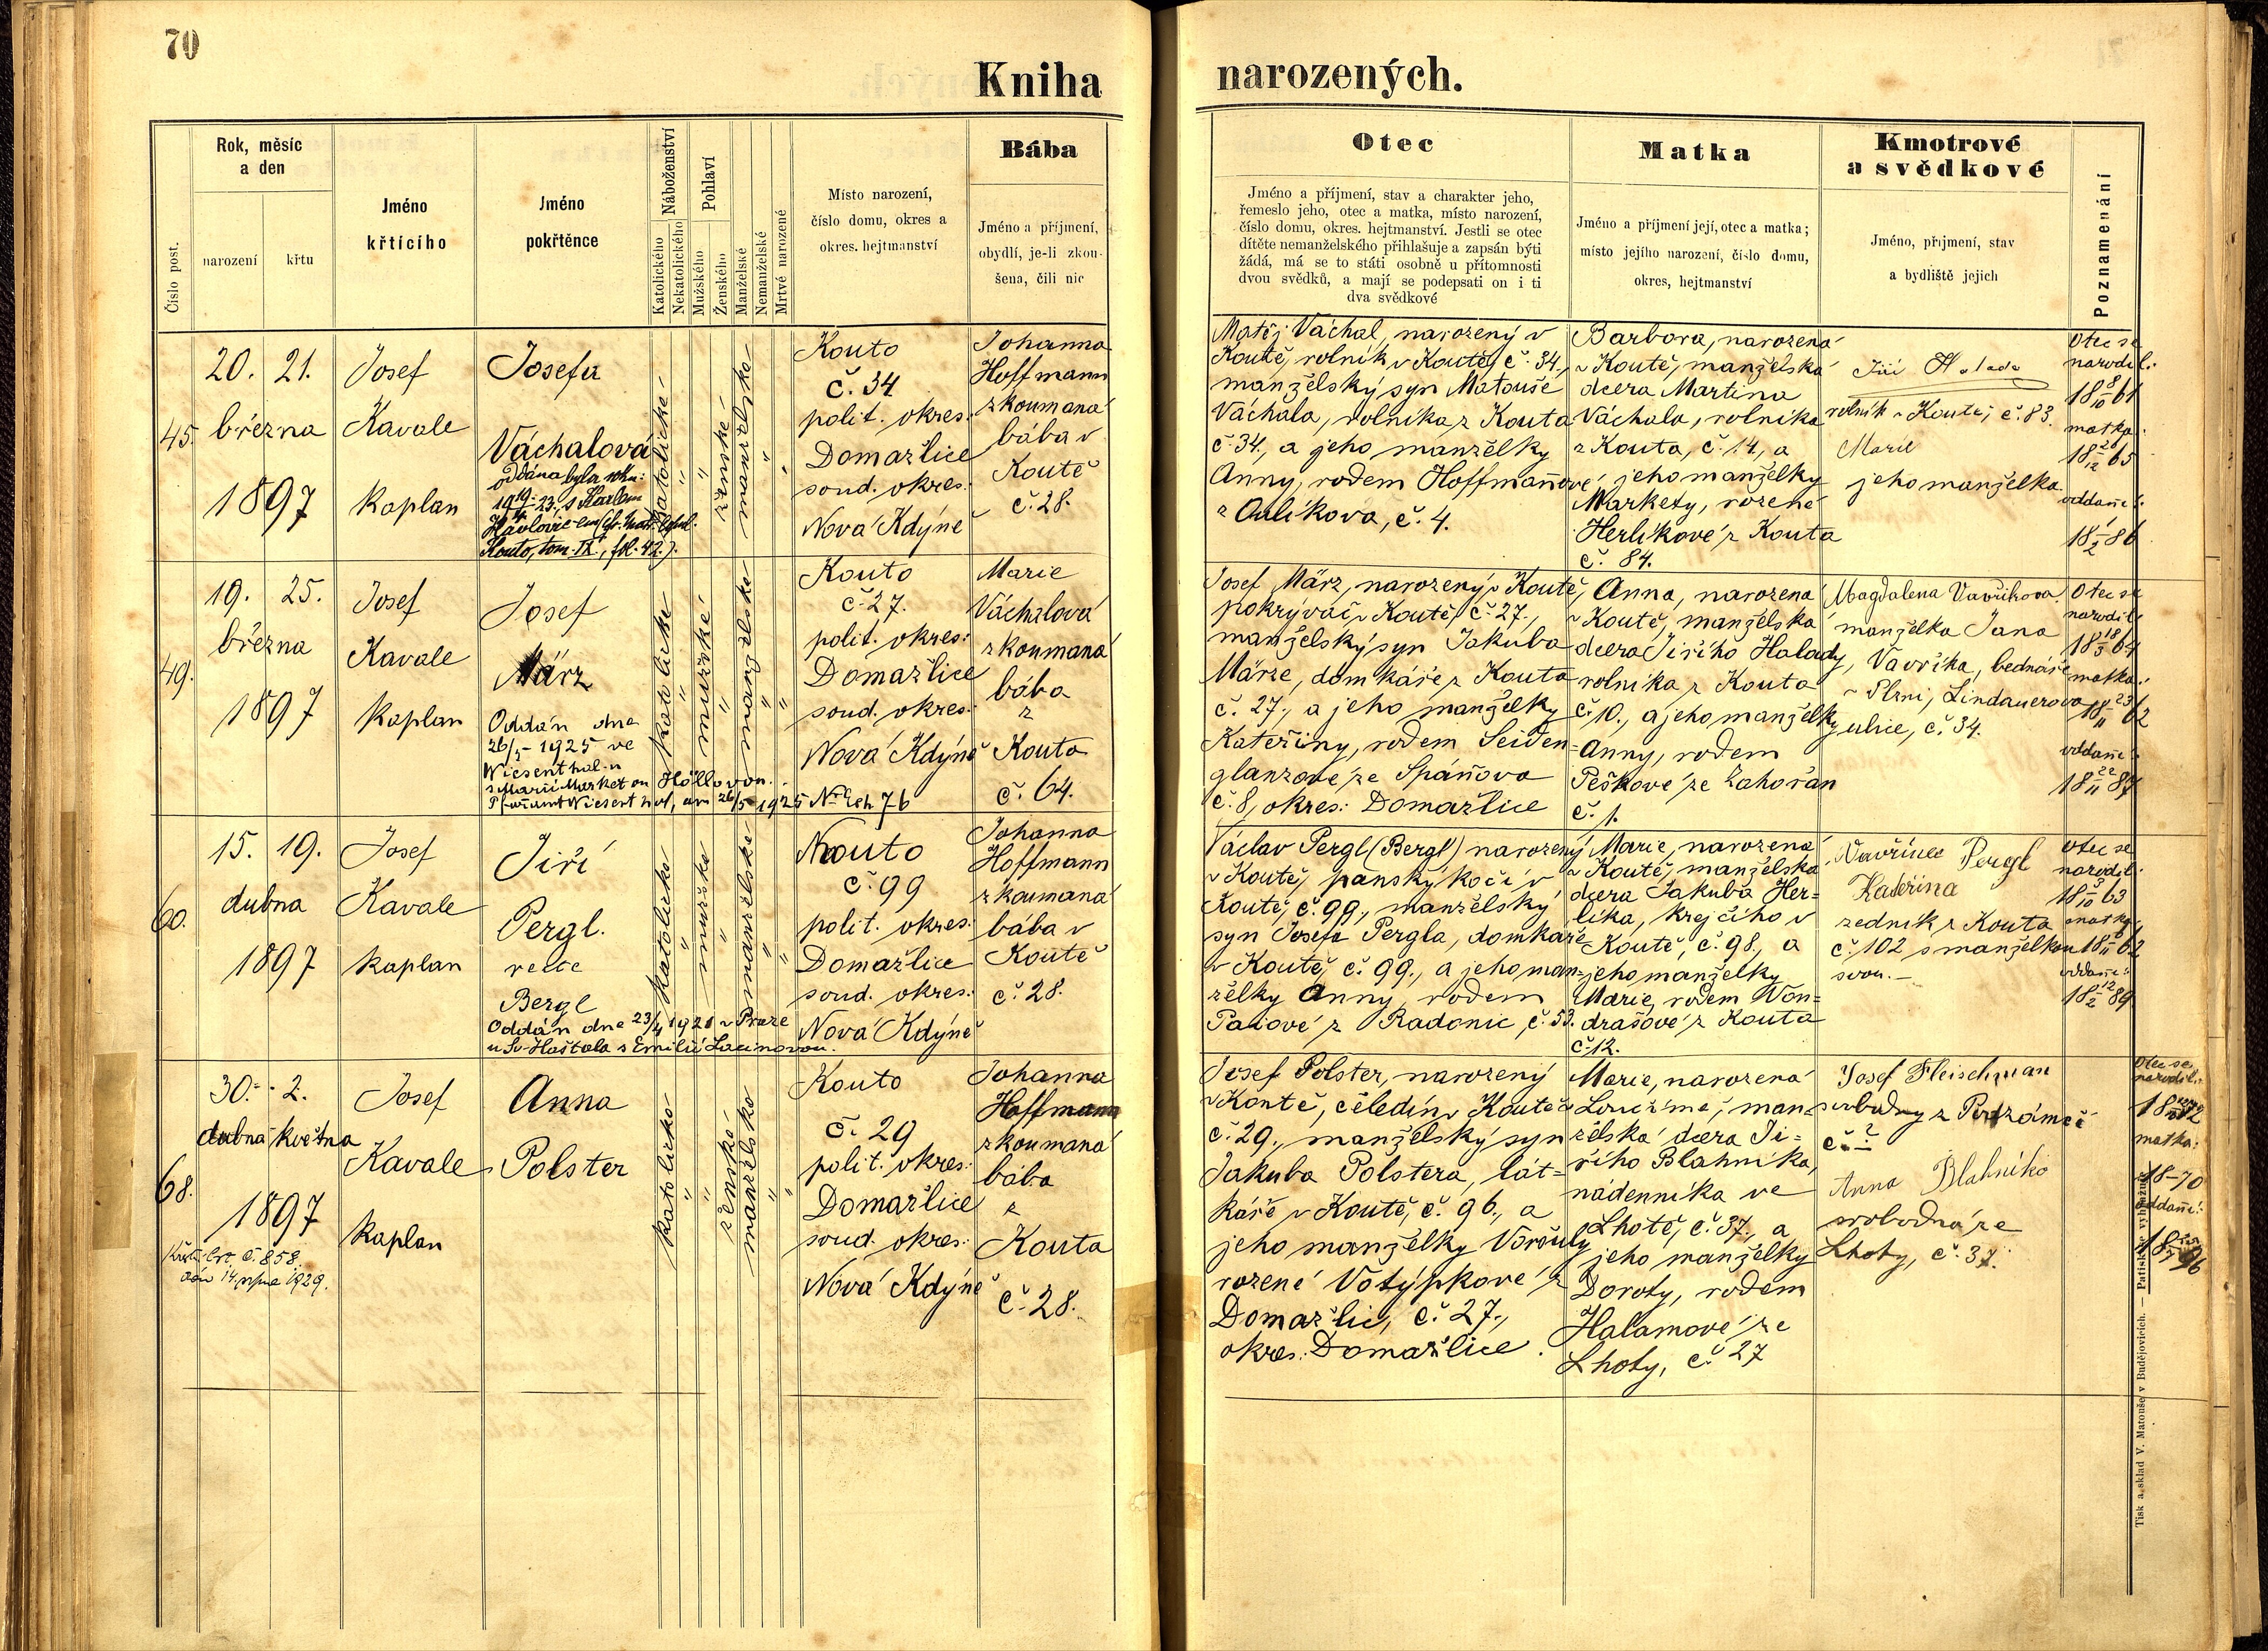 70
Kniha
narozených.
Číslo post.
Rok, měsíc
a den
narození
křtu
Jméno
křtícího
Jméno
pokřtěnce
Náboženství
Katolického
Nekatolického
Pohlaví
Mužského
Ženského
Manželské
Nemanželské
Mrtvě narozené
Místo narození,
číslo domu, okres a
okres. hejtmanství
Bába
Jméno a příjmení,
obydlí, je-li zkou-
šena, čili nic
Otec
Jméno a příjmení, stav a charakter jeho,
řemeslo jeho, otec a matka, místo narození,
číslo domu, okres. hejtmanství. Jestli se otec
dítěte nemanželského přihlašuje a zapsán býti
žádá, má se to státi osobně u přítomnosti
dvou svědků, a mají se podepsati on i ti
dva svědkové
Matka
Jméno a příjmení její, otec a matka;
místo jejího narození, číslo domu,
okres, hejtmanství
Kmotrové
a svědkové
Jméno, příjmení, stav
a bydliště jejich
Poznamenání
45.
20. 21.
března
1897
Josef
Kavale
kaplan
Josefa
Váchalová
oddána byla roku:
Kouto, tom. IX., fol. 42.).
katolické
"
"
ženské
manželské
"
"
Kouto
č. 34
polit. okres:
Domažlice
soud. okres:
Nová Kdýně
Johanna
Hoffmann
zkoumaná
bába v
Koutě
č. 28.
Matěj Váchal, narozený v
Koutě, rolník v Koutě, č. 34.,
manželský syn Matouše
Váchala, rolníka z Kouta
č. 34., a jeho manželky
Anny, rodem Hoffmanové
z Oulíkova, č. 4.
Barbora, narozená
v Koutě, manželská
dcera Martina
Váchala, rolníka
z Kouta, č. 14, a
jeho manželky
Markety, rozené
Herlíkové z Kouta
č. 84.
Jiří Halada
rolník v Koutě, č. 83.
Marie
jeho manželka
Otec se
narodil:
18 8/10 61
matka:
oddaní:
18 1/2 86
49.
19. 25.
března
1897
Josef
Kavale
kaplan
Josef
März
Oddán dne
26/5 1925 ve
Wiesenthal-u
katolické
"
mužské
"
manželské
"
"
Kouto
č. 27.
polit. okres:
Domažlice
soud. okres:
Nová Kdýně
Marie
Váchalová
zkoumaná
bába
z
Kouta
č. 64.
Josef März, narozený v Koutě,
pokrývač v Koutě, č. 27.,
manželský syn Jakuba
Märze, domkáře z Kouta
č. 27., a jeho manželky
Kateřiny, rodem Seiden-
glanzové ze Spáňova
č. 8, okres: Domažlice
Anna, narozená
v Koutě, manželská
dcera Jiřího Halady,
rolníka z Kouta
č. 10., a jeho manželky
Anny, rodem
Peškové ze Zahořan
č. 1.
Magdalena Vavříková
manželka Jana
Vavříka, bednáře
v Plzni, Lindauerova
ulice, č. 34.
Otec se
narodil:
matka:
18 23/11 62
oddaní:
18 22/11 87
60.
15. 19.
dubna
1897
Josef
Kavale
kaplan
Jiří
Pergl.
recte
Bergl
Oddán dne 23/4 1921 v Praze
u Sv. Haštala s Emilií Lacinovou.
katolické
"
mužské
"
manželské
"
"
Kouto
č. 99
polit. okres:
Domažlice
soud. okres:
Nová Kdýně
Johanna
Hoffmann
zkoumaná
bába v
Koutě
č. 28.
Václav Pergl (Bergl) narozený
v Koutě, panský kočí v
Koutě, č. 99., manželský
syn Josefa Pergla, domkáře
v Koutě, č. 99., a jeho man-
želky Anny, rodem
z Radonic, č. 53.
Marie, narozená
v Koutě, manželská
dcera Jakuba Her-
líka, krejčího v
Koutě, č. 98., a
jeho manželky
Marie, rodem Von-
drašové z Kouta
č. 12.
Vavřinec Pergl
Kateřina
zedník z Kouta
č. 102 s manželkou
svou. –
Otec se
narodil:
matka:
oddaní:
18 12/2 89
68.
30. 2.
dubna května
1897
dne 14. srpna 1929.
Josef
Kavale,
kaplan
Anna
Polster
katolické
"
"
ženské
manželské
"
"
Kouto
č. 29
polit. okres:
Domažlice
soud. okres:
Nová Kdýně
Johanna
Hoffmann
zkoumaná
bába
z
Kouta
č. 28.
Josef Polster, narozený
v Koutě, čeledín v Koutě
č. 29., manželský syn
Jakuba Polstera, lát-
káře v Koutě, č. 96., a
jeho manželky Voršuly
rozené Votýpkové z
Domažlic, č. 27.,
okres: Domažlice.
Marie, narozená
v Loučimě, man-
želská dcera Ji-
řího Blahníka,
nádenníka ve
Lhotě, č. 37., a
jeho manželky
Doroty, rodem
Halamové ze
Lhoty, č. 27
Josef Fleischman
č. ?
Anna Blahníko
svobodná ze
Lhoty, č. 37.
Otec se
narodil:
matka:
18–70
oddaní:
Tisk a sklad V. Matouše v Budějovicích. — Patisk se vyhražuje.